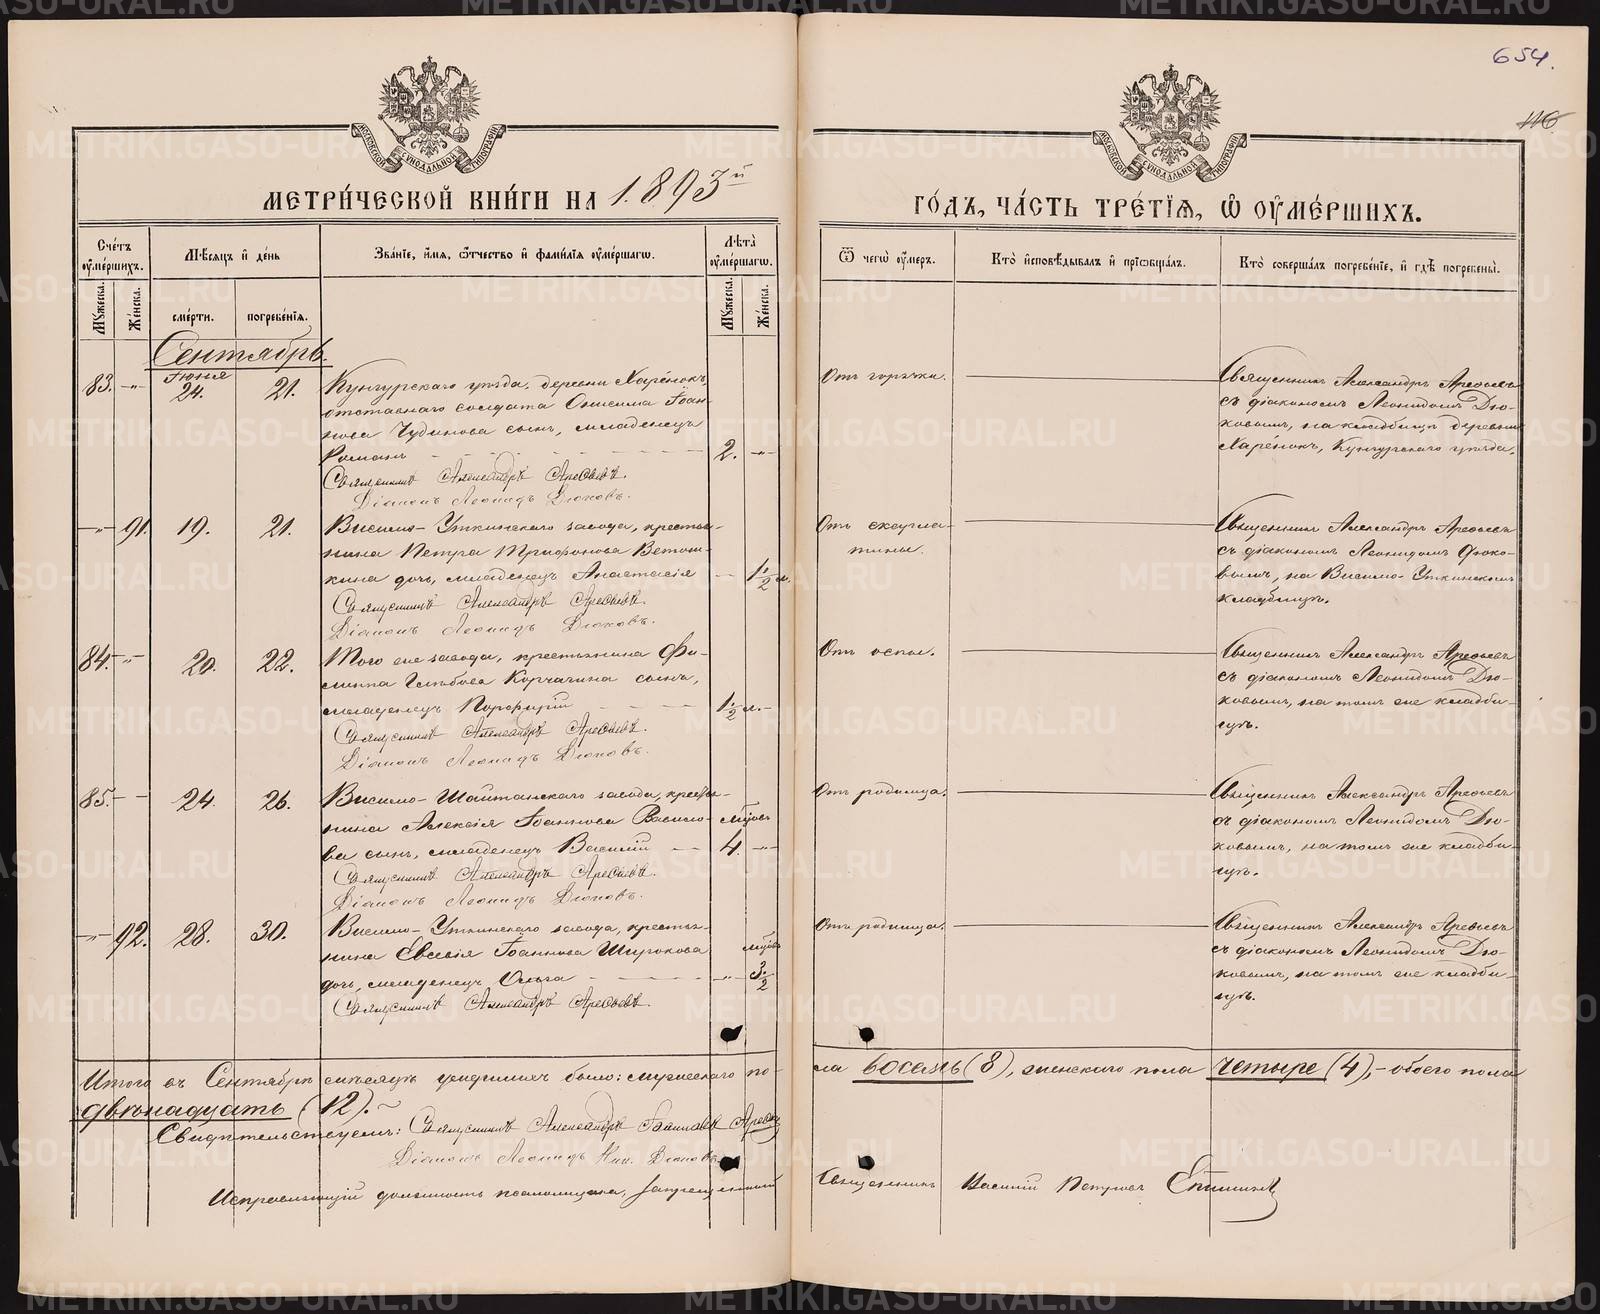 654.
116
МЕТРИ́ЧЕСКОЙ КНИ́ГИ НА 1893й
ГО́ДЪ, ЧА́СТЬ ТРЕ́ТІѦ, Ѿ ОУМЕ́РШИХЪ.
Сче́тъ оуме́ршихъ.
Мѣсѧцъ и де́нь
Зва́нїе, и́мѧ, ѻ́тчество и фами́лїѧ оуме́ршагѡ.
Лѣта̀ оуме́ршагѡ.
Ѿ чегѡ̀ оу́меръ.
Кто̀ исповѣ́дывалъ и прїѡбща́лъ.
Кто̀ соверша́лъ погребе́нїе, и гдѣ̀ погребены̀.
Му́жеска.
Же́нска.
сме́рти.
погребе́нїѧ.
Му́жеска.
Же́нска.
Сентябрь.
83. -"- Іюня 24. 21.
Кунгурскаго уѣзда, деревни Харёнокъ,
отставнаго солдата Онисима Іоан-
нова Чудинова сынъ, младенецъ
Романъ 2. -"-
Священникъ Александръ Арефьевъ.
Діаконъ Леонидъ Дюковъ.
Отъ горячки.
Священникъ Александръ Арефьевъ
съ діакономъ Леонидомъ Дю-
ковымъ, на кладбищѣ деревни
Харёнокъ, Кунгурскаго уѣзда.
-"- 91. 19. 21.
Висимо-Уткинскаго завода, крестья-
нина Петра Трифонова Ветош-
кина дочь, младенецъ Анастасія - 1 1/2 м.
Священникъ Александръ Арефьевъ.
Діаконъ Леонидъ Дюковъ.
Отъ скарла-
тины.
Священникъ Александръ Арефьевъ
съ діакономъ Леонидомъ Дюко-
вымъ, на Висимо-Уткинскомъ
кладбищѣ.
84. -"- 20. 22.
Того же завода, крестьянина Фи-
липпа Глѣбова Корчагина сынъ,
младенецъ Порфирій 1 1/2 м. -
Священникъ Александръ Арефьевъ.
Діаконъ Леонидъ Дюковъ.
Отъ оспы.
Священникъ Александръ Арефьевъ
съ діакономъ Леонидомъ Дю-
ковымъ, на томъ же кладби-
щѣ.
85. - - 24. 26.
Висимо-Шайтанскаго завода, крестья-
нина Алексія Іоаннова Василь- мѣсяц.
ва сынъ, младенецъ Василій 4. -"-
Священникъ Александръ Арефьевъ.
Діаконъ Леонидъ Дюковъ.
Отъ родимца.
Священникъ Александръ Арефьевъ
съ діакономъ Леонидомъ Дю-
ковымъ, на томъ же кладби-
щѣ.
-"- 92. 28. 30.
Висимо-Уткинскаго завода, крестья-
нина Евсевія Іоаннова Широкова
дочь, младенецъ Ольга -"- 3/2
Священникъ Александръ Арефьевъ.
Отъ родимца.
Священникъ Александръ Арефьевъ
съ діакономъ Леонидомъ Дю-
ковымъ, на томъ же кладби-
щѣ.
Итого въ Сентябрѣ мѣсяцѣ умершихъ было: мужескаго по-
ла восемь (8), женскаго пола четыре (4), - обоего пола
двѣнадцать (12).
Свидѣтельствуемъ: Священникъ Александръ Іоанновъ Арефьевъ
Діаконъ Леонидъ Ник. Дюковъ
Исправляющій должность псаломщика, запрещенный
Священникъ Василій Петровъ